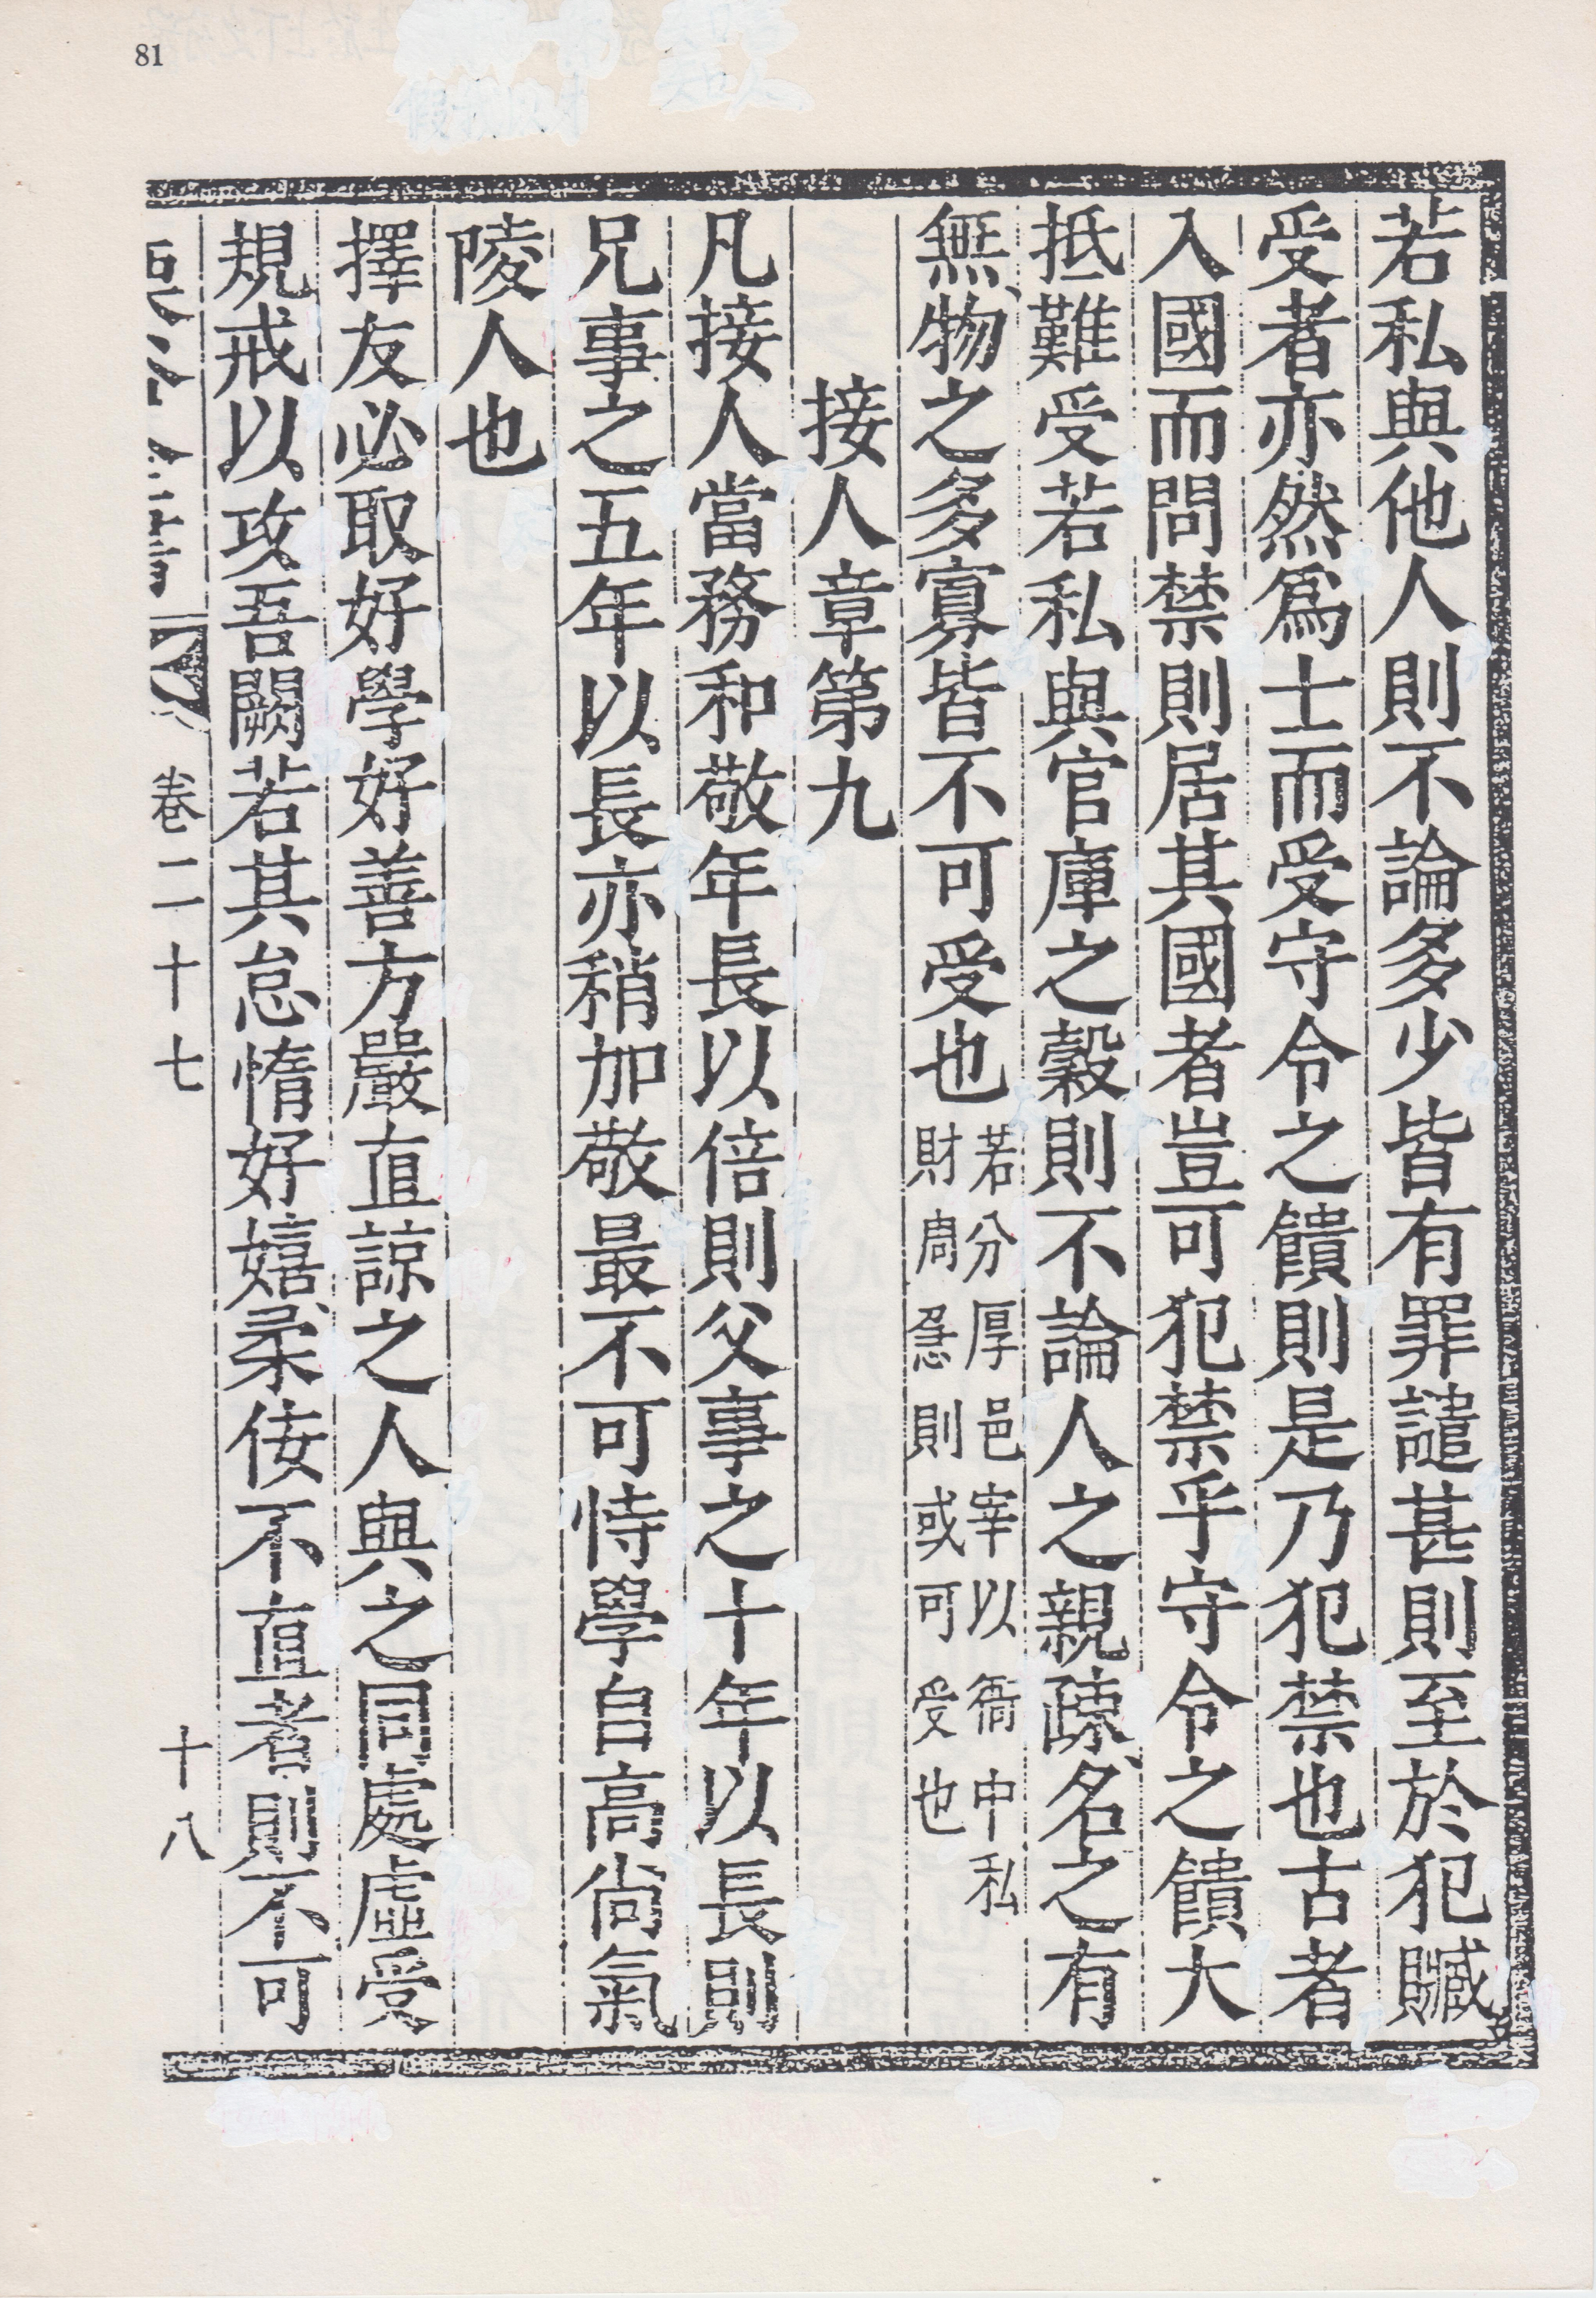 81
若私與他人則不論多少皆有罪譴甚則至於犯贓
受者亦然爲士而受守令之饋則是乃犯禁也古者
入國而問禁則居其國者豈可犯禁乎守令之饋大
抵難受若私與官庫之穀則不論人之親疎名之有
無物之多寡皆不可受也若分厚邑宰以衙中私財周急則或可受也
接人章第九
凡接人當務和敬年長以倍則父事之十年以長則
兄事之五年以長亦稍加敬最不可恃學自高尙氣
陵人也
擇友必取好學好善方嚴直諒之人與之同處虛受
規戒以攻吾闕若其怠惰好嬉柔佞不直者則不可
卷二十七
十八